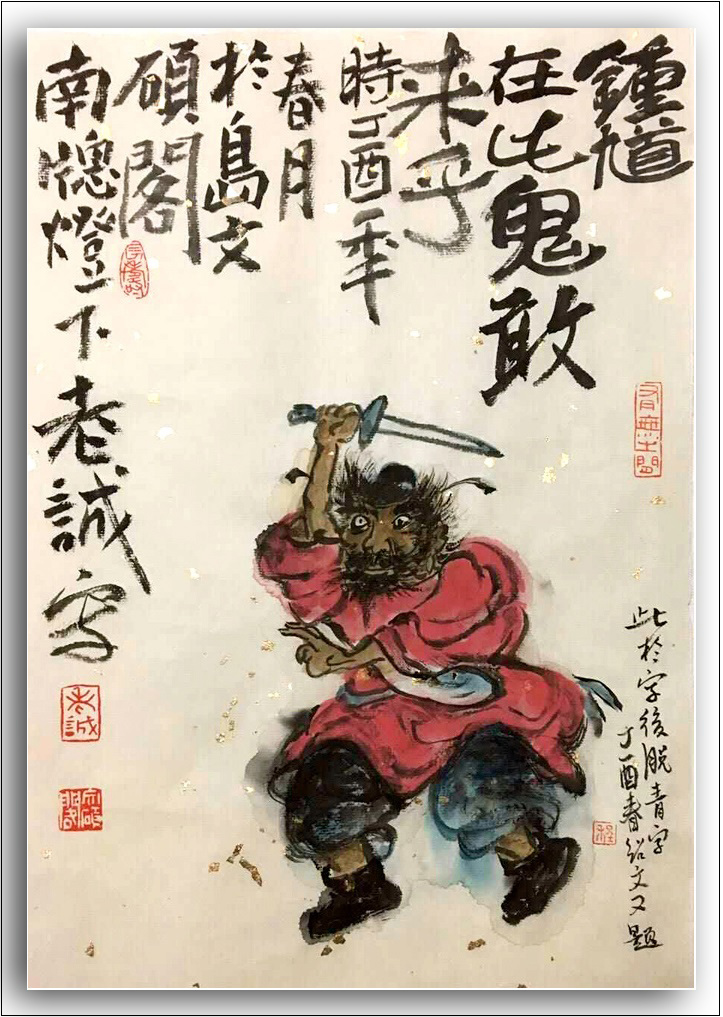 鍾馗
在此鬼敢
来乎
時丁酉年
春月
於島文
碩閣
南牕燈下老誠写
老誠
此於字後脱青字
丁酉春绍文又题
程